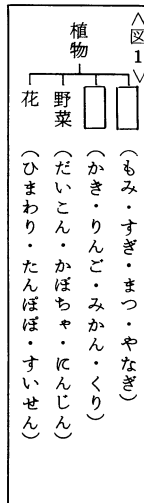 ＜図1＞
植物
（もみ・すぎ・まつ・やなぎ）
（かき・りんご・みかん・くり）
野菜（だいこん・かぼちゃ・にんじん）
花（ひまわり・たんぽぽ・すいせん）